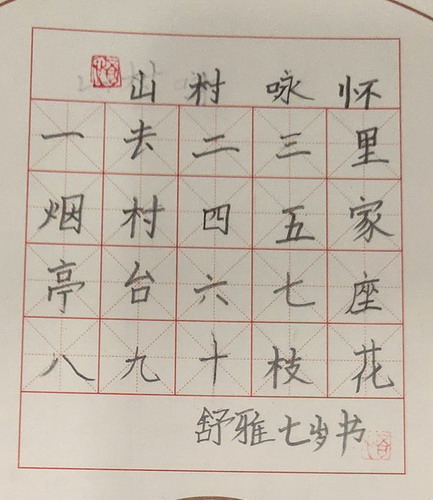 山村咏怀
一去二三里
烟村四五家
亭台六七座
八九十枝花
舒雅七岁书